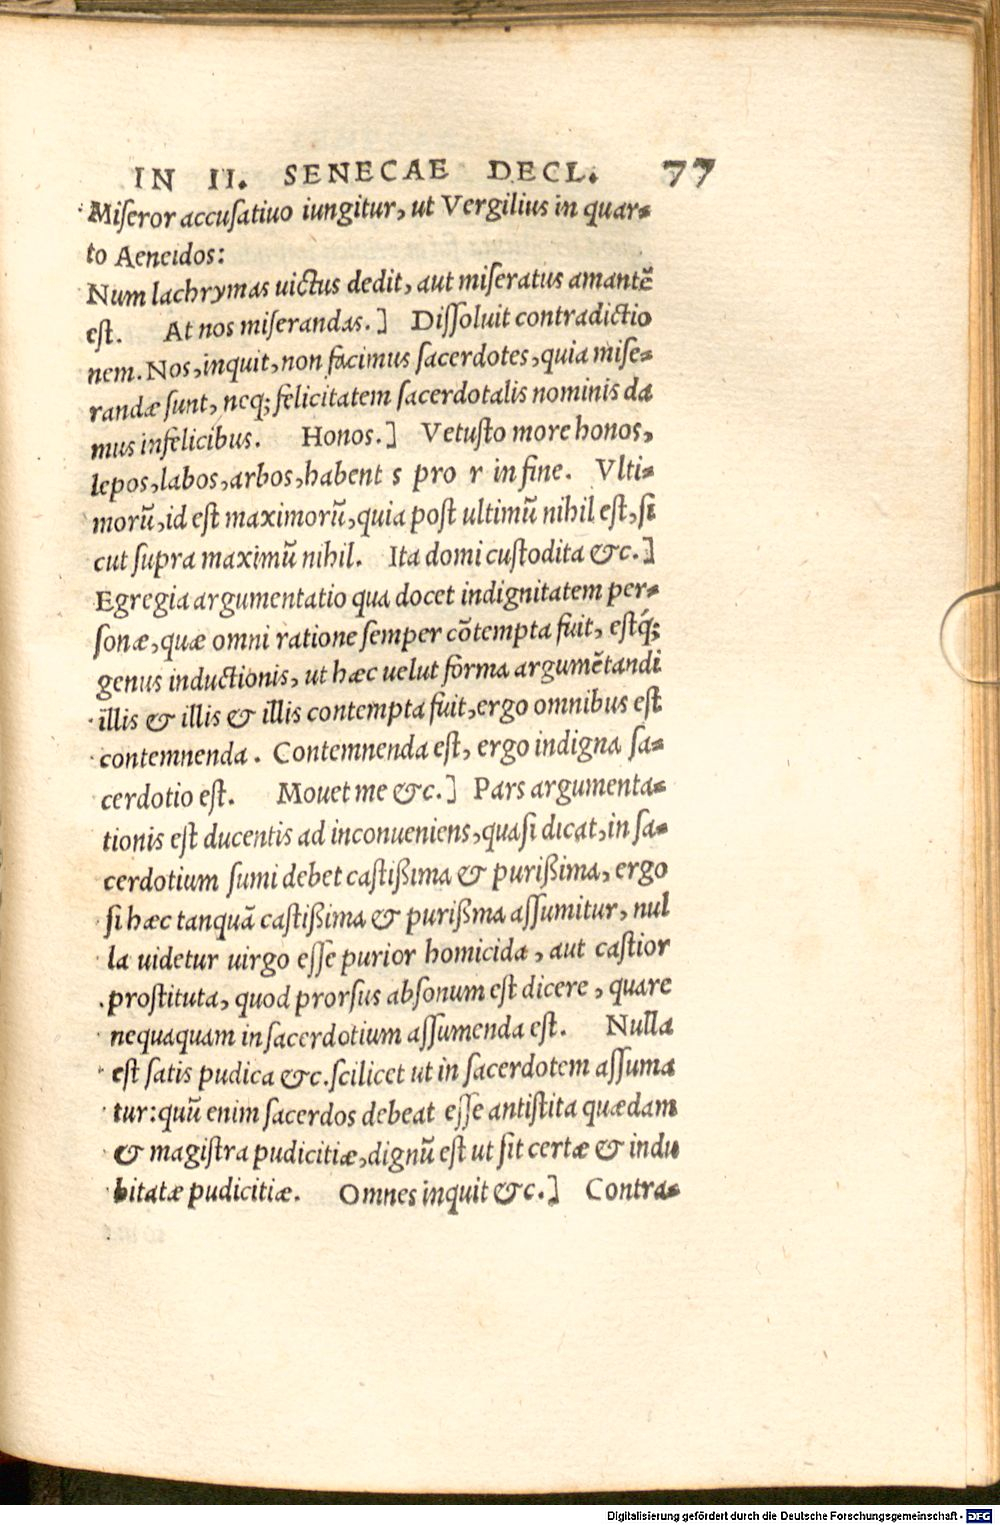 IN II. SENECAE DECL. 77
Miſeror accuſatiuo iungitur, ut Vergilius in quar-
to Aeneidos:
Num lachrymas uictus dedit, aut miſeratus amantẽ
eſt. At nos miſerandas.] Diſſoluit contradictio
nem. Nos, inquit, non facimus ſacerdotes, quia miſe-
randæ ſunt, neq; felicitatem ſacerdotalis nominis da
mus infelicibus. Honos.] Vetuſto more honos,
lepos, labos, arbos, habent s pro r in fine. Vlti-
morũ, id eſt maximorũ, quia poſt ultimũ nihil eſt, ſi
cut ſupra maximũ nihil. Ita domi cuſtodita &c.]
Egregia argumentatio qua docet indignitatem per-
ſonæ, quæ omni ratione ſemper cõtempta fuit, eſtq́;
genus inductionis, ut hæc uelut forma argumẽtandi
illis & illis & illis contempta fuit, ergo omnibus eſt
contemnenda. Contemnenda eſt, ergo indigna ſa-
cerdotio eſt. Mouet me &c.] Pars argumenta-
tionis eſt ducentis ad inconueniens, quaſi dicat, in ſa-
cerdotium ſumi debet caſtißima & purißima, ergo
ſi hæc tanquã caſtißima & purißma aſſumitur, nul
la uidetur uirgo eſſe purior homicida, aut caſtior
proſtituta, quod prorſus abſonum eſt dicere, quare
nequaquam in ſacerdotium aſſumenda eſt. Nulla
eſt ſatis pudica &c. ſcilicet ut in ſacerdotem aſſuma
tur: quũ enim ſacerdos debeat eſſe antiſtita quædam
& magiſtra pudicitiæ, dignũ eſt ut ſit certæ & indu
bitatæ pudicitiæ. Omnes inquit &c.] Contra-
Digitalisierung gefördert durch die Deutsche Forschungsgemeinschaft - DFG